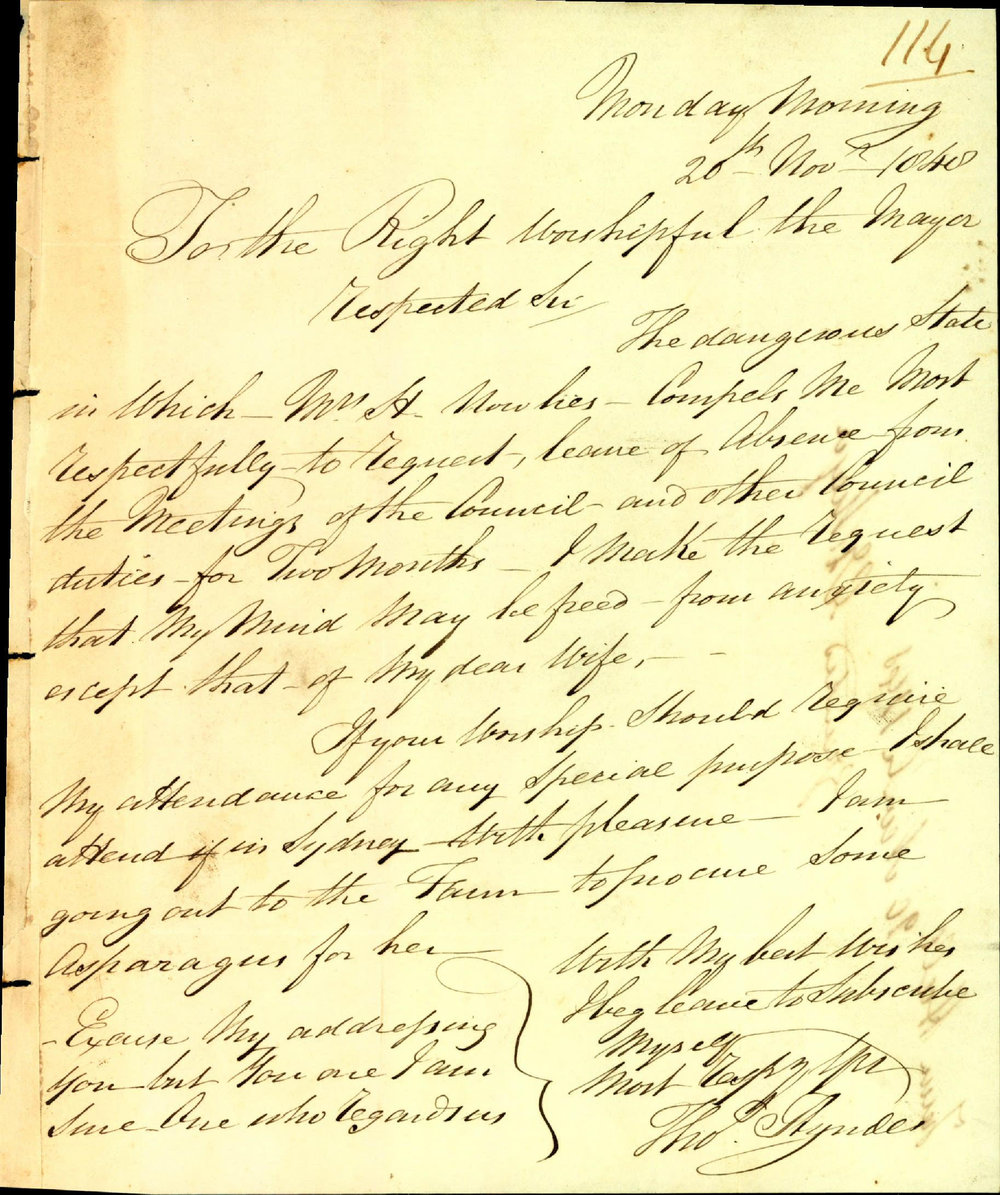 114
Monday Morning
20th Novr 1848
To the Right Worshipful the Mayor
Respected Sir
The dangerous State
in Which – Mrs H – Now lies – Compels Me Most
respectfully to request, leave of Absence from
the Meetings of the Council – and other Council
duties – for Two Months – I Make the request
that My Mind May be freed – from anxiety
except that – of My dear Wife, – –
If your Worship Should require
My attendance for any Special purpose – I shall
attend if in Sydney – With pleasure – I am
going out to the Farm – to procure Some
Asparagus for her –
– Excuse My addressing
You – but You are I am
Sure One who regards us
With My best Wishes
I beg leave to Subscribe
Myself
Most Respy Yrs
Thos. Hyndes